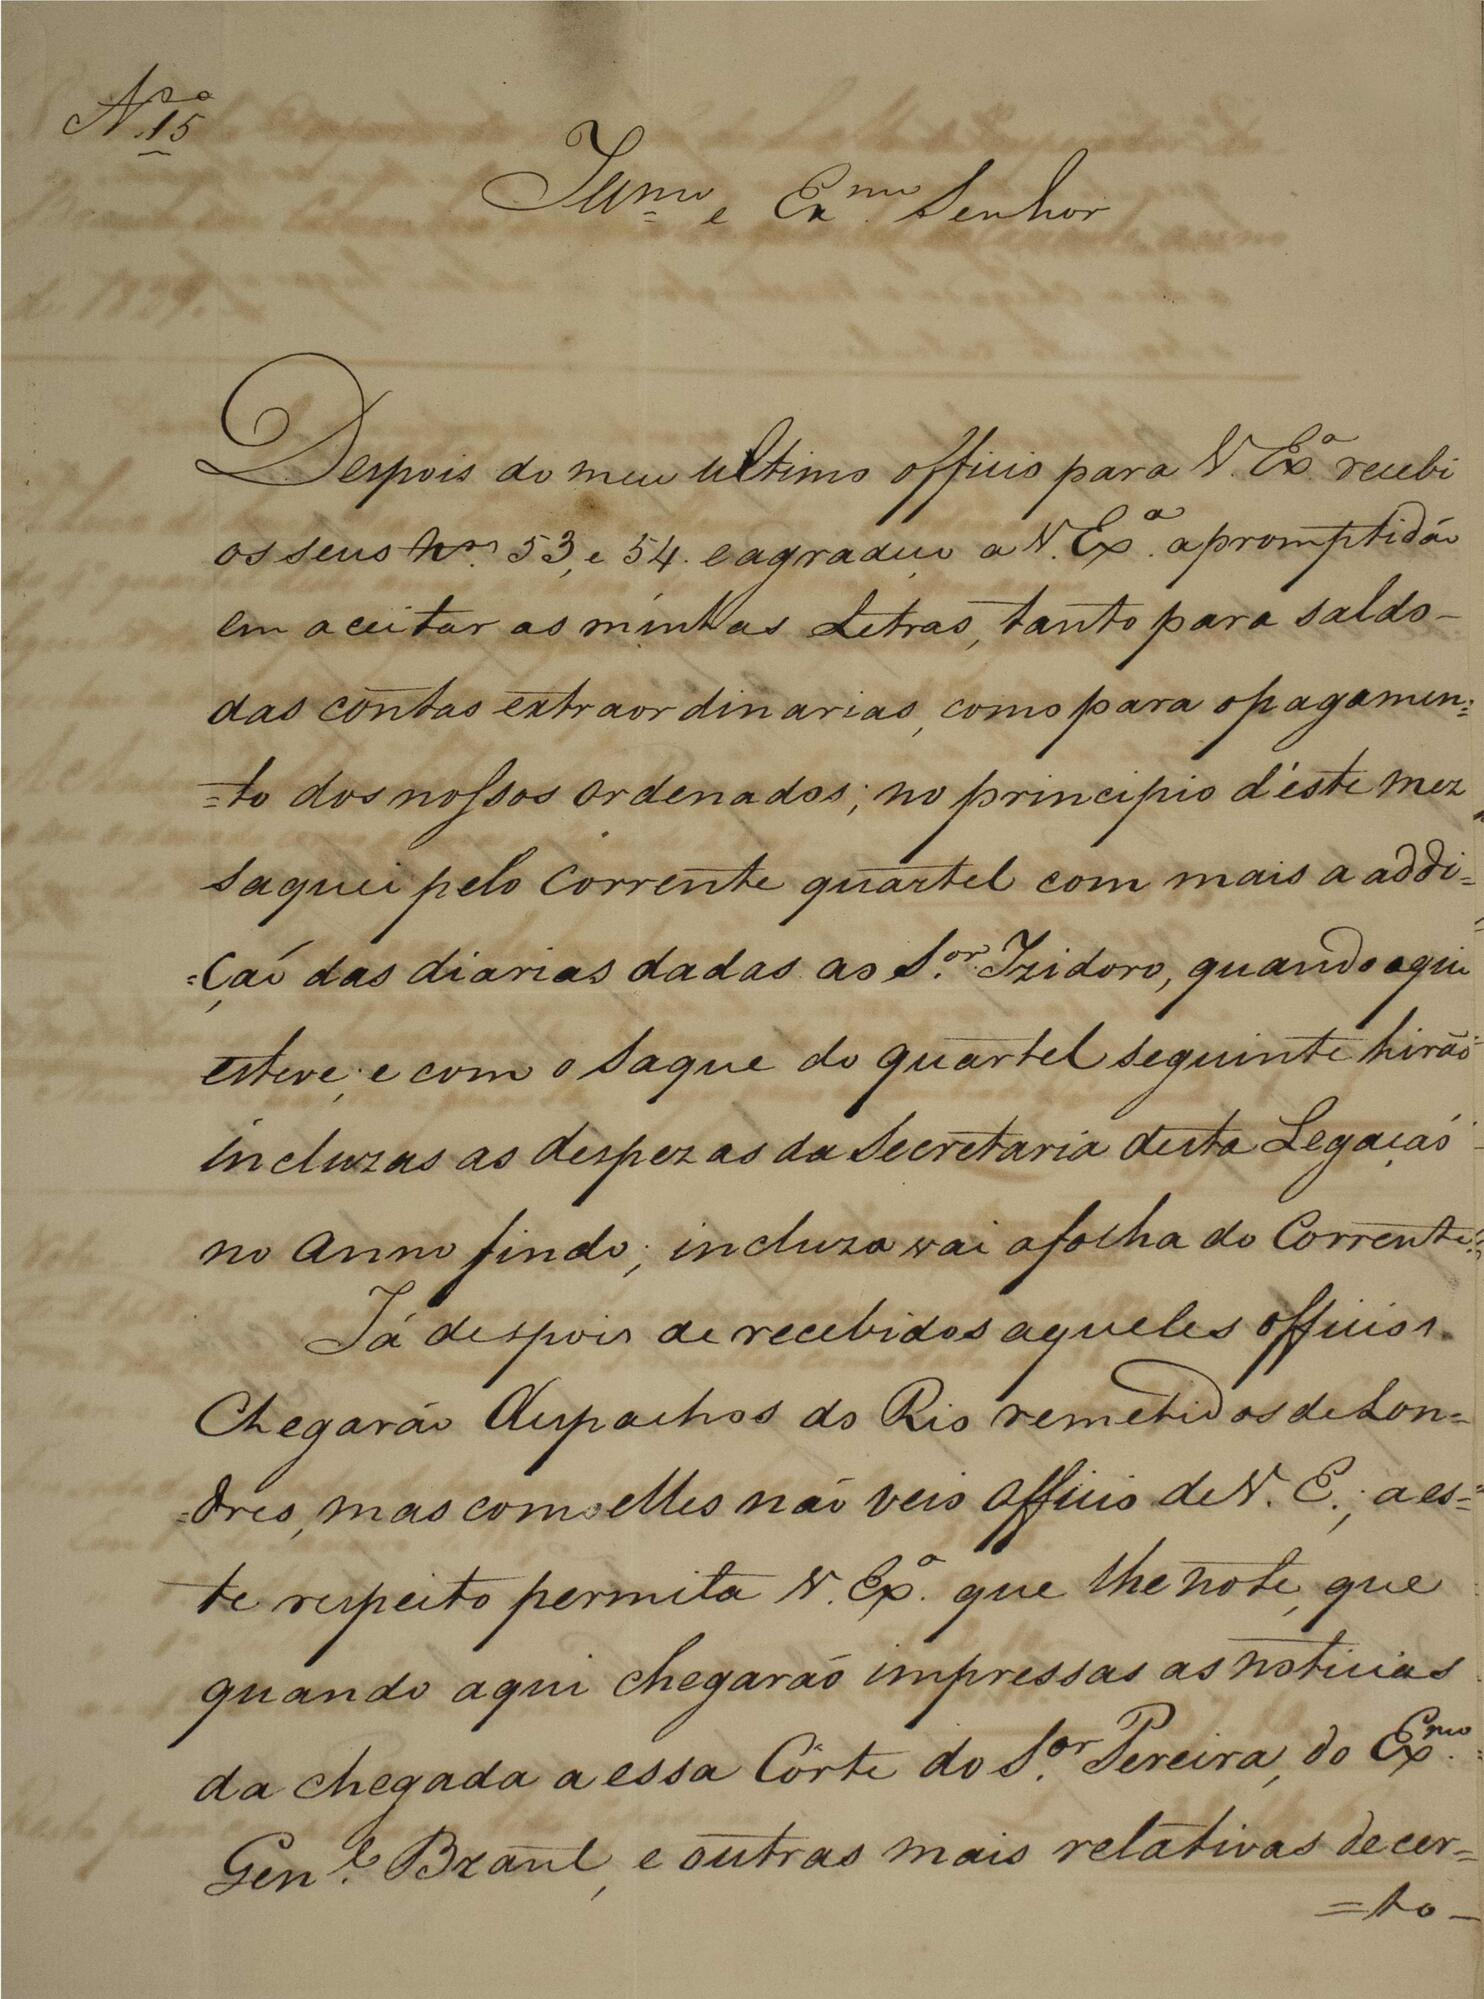 N.º 15
Illmo e Exmo. Senhor
Depois do meu ultimo officio para V. Exª. recebi
os seus nos. 53, e 54. e agradeço a V. Exª. a promptidão
em aceitar as minhas Letras, tanto para saldo
das contas extraordinarias, como para o pagamen=
=to dos nossos ordenados; no principio d'este mez
saquei pelo corrente quartel com mais a addi=
=çaõ das diarias dadas ao S.or Izidoro, quando aqui
esteve, e com o saque do quartel seguinte hirão
incluzas as despezas da Secretaria desta Legaçaõ
no anno findo; incluza vai a folha do Corrente.
Já despois de recebidos aqueles officios
Chegarão despachos do Rio remetidos de Lon=
=dres, mas com elles não veio officio de V. E.; a es=
te respeito permita V. Exª. que lhe note, que
quando aqui chegarão impressas as noticias
da chegada a essa Côrte do S.or Pereira, do Exmo.
Gen.l Brant, e outras mais relativas de cer=
=to